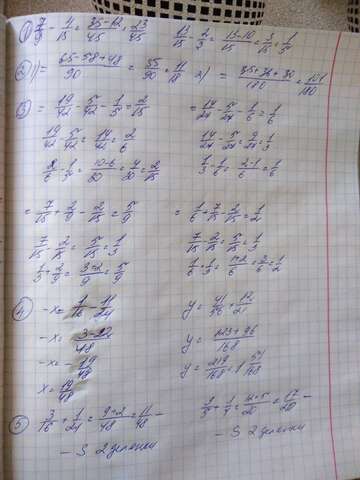 ① 7/9 - 4/15 = 35-12/45 = 23/45    13/15 - 2/3 = 13-10/15 = 3/15 = 1/5
② 1) = 65-58+48/90 = 55/90 = 11/18    2) = 35+36+30/180 = 101/180
③ = 19/42 - 5/42 - 1/5 = 2/15    = 14/24 - 5/24 - 1/6 = 1/6
19/42 - 5/42 = 14/42 = 2/6    14/24 - 5/24 = 9/24 = 1/3
- 1/5 = 10-6/30 = 4/30 = 2/15    1/3 - 1/6 = 2-1/6 = 1/6
= 7/15 + 2/9 - 2/15 = 5/9    = 1/6 + 7/15 - 2/15 = 1/2
7/15 - 2/15 = 5/15 = 1/3    7/15 - 2/15 = 5/15 = 1/3
1/3 + 2/9 = 3+2/9 = 5/9    1/6 + 1/3 = 1+2/6 = 3/6 = 1/2
④ -x = 1/16 - 11/24    y = 41/56 + 12/21
-x = 3-22/48    y = 123+96/168
-x = - 19/48    y = 219/168 = 1 51/168
x = 19/48
⑤ 3/16 + 1/24 = 9+2/48 = 11/48 -    + 1/4 = 17/20 -
- S 2 делянки    - S 2 делянки